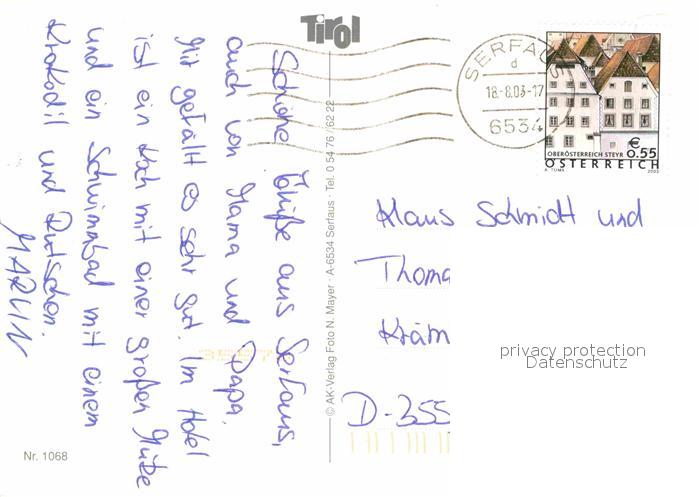 Tirol
Schöne Grüße aus Serfaus,
auch von Mama und Papa.
Mir gefällt es sehr gut. Im Hotel
ist ein Koch mit einer großen Mütze
und ein Schwimmbad mit einem
Krokodil und Rutschen.
MARVIN
Nr. 1068
© AK-Verlag Foto N. Mayer · A-6534 Serfaus · Tel. 0 54 76 / 62 22
SERFAUS
d
18.-8.03-17
6534
OBERÖSTERREICH STEYR
€ 0.55
ÖSTERREICH
A. TUMA 2003
Klaus Schmidt und
Thoma
Kräm
D-355
privacy protection
Datenschutz